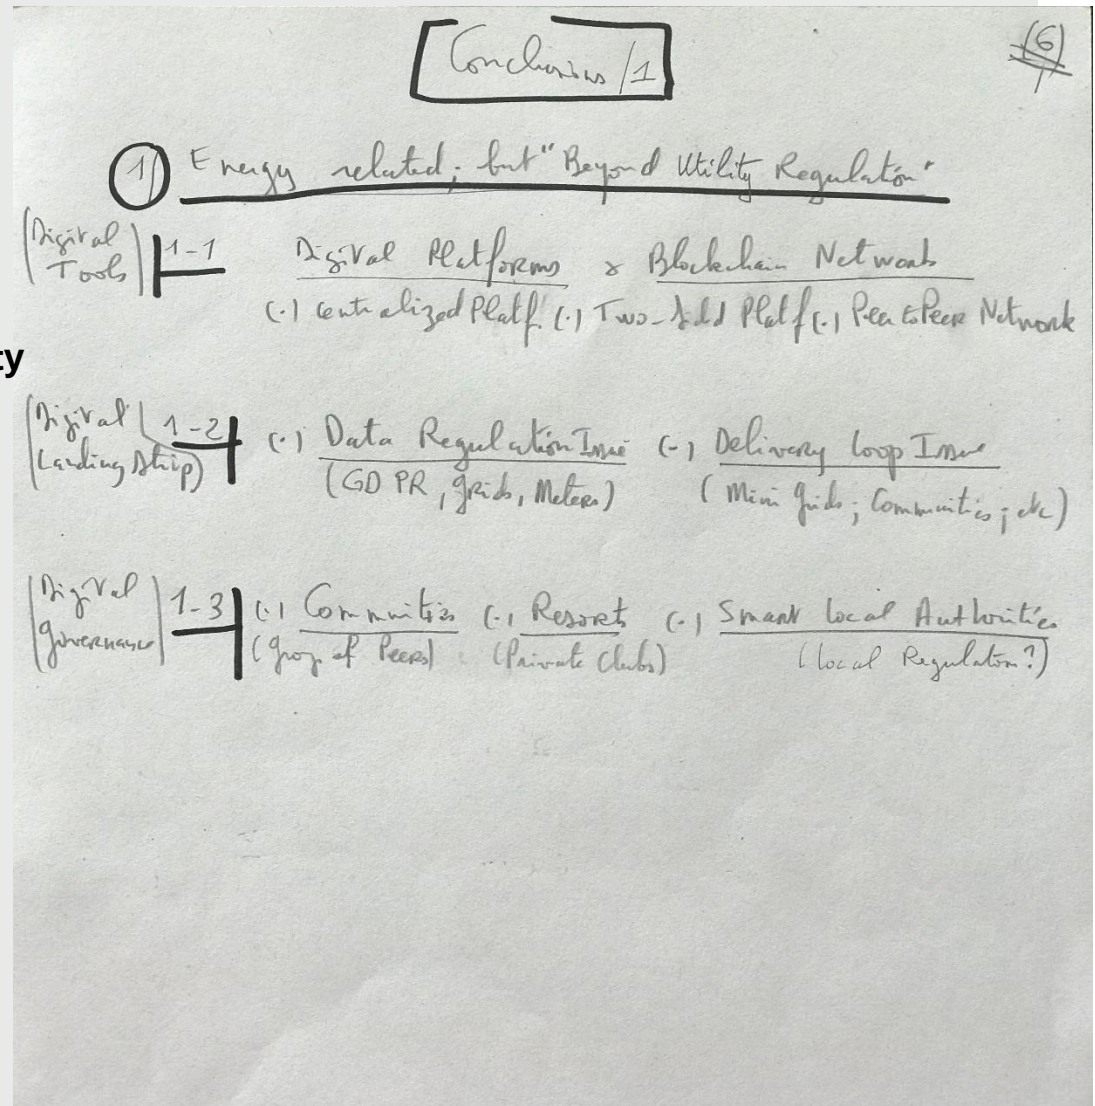 Conclusions /1
(6)
1) Energy related; but "Beyond Utility Regulation"
(Digital Tools) 1-1 Digital Platforms & Blockchain Networks
(.) Centralized Platf. (.) Two-Sided Platf (.) Peer to Peer Network
ty
(Digital Landing Strip) 1-2 (.) Data Regulation Issue (.) Delivery Loop Issue
(GDPR, grids, Meters) (Mini grids; Communities; etc)
(Digital Governance) 1-3 (.) Communities (.) Resorts (.) Smart Local Authorities
(group of Peers) (Private Clubs) (local Regulation?)